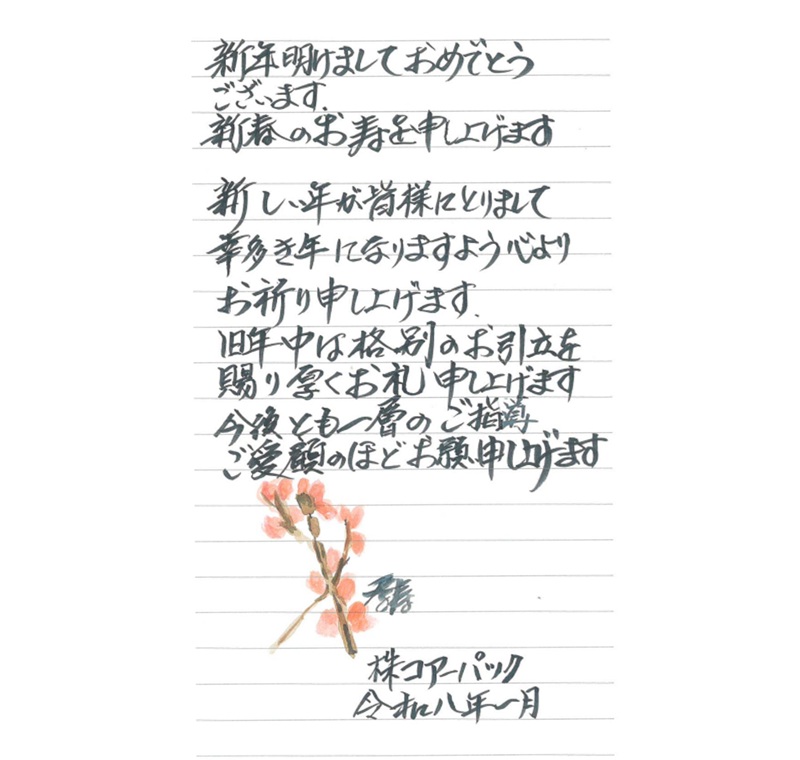 新年明けましておめでとう
ございます.
新春のお寿を申し上げます
新しい年が皆様にとりまして
幸多き年になりますよう心より
お祈り申し上げます.
旧年中は格別のお引立を
賜り厚くお礼申し上げます
今後とも一層のご指導
ご愛顧のほどお願申し上げます
株コアーパック
令和八年一月